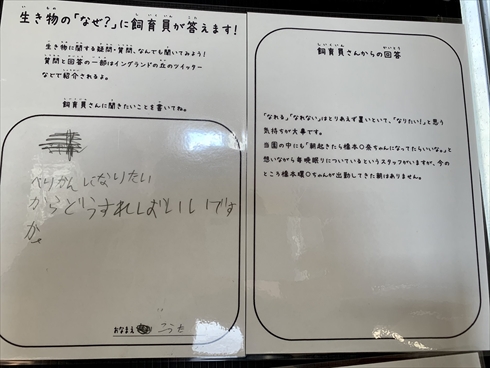 生き物の「なぜ?」に飼育員が答えます!
生き物に関する疑問・質問、なんでも聞いてみよう!
質問と回答の一部はイングランドの丘のツイッター
などで紹介されるよ。
飼育員さんに聞きたいことを書いてね。
ぺりかんになりたい
からどうすればいいです
か
おなまえ こうた
飼育員さんからの回答
「なれる」「なれない」はとりあえず置いといて、「なりたい!」と思う
気持ちが大事です。
当園の中にも「朝起きたら橋本〇奈ちゃんになってたらいいな。」と
想いながら毎晩眠りについているというスタッフがいますが、今の
ところ橋本環〇ちゃんが出勤してきた朝はありません。